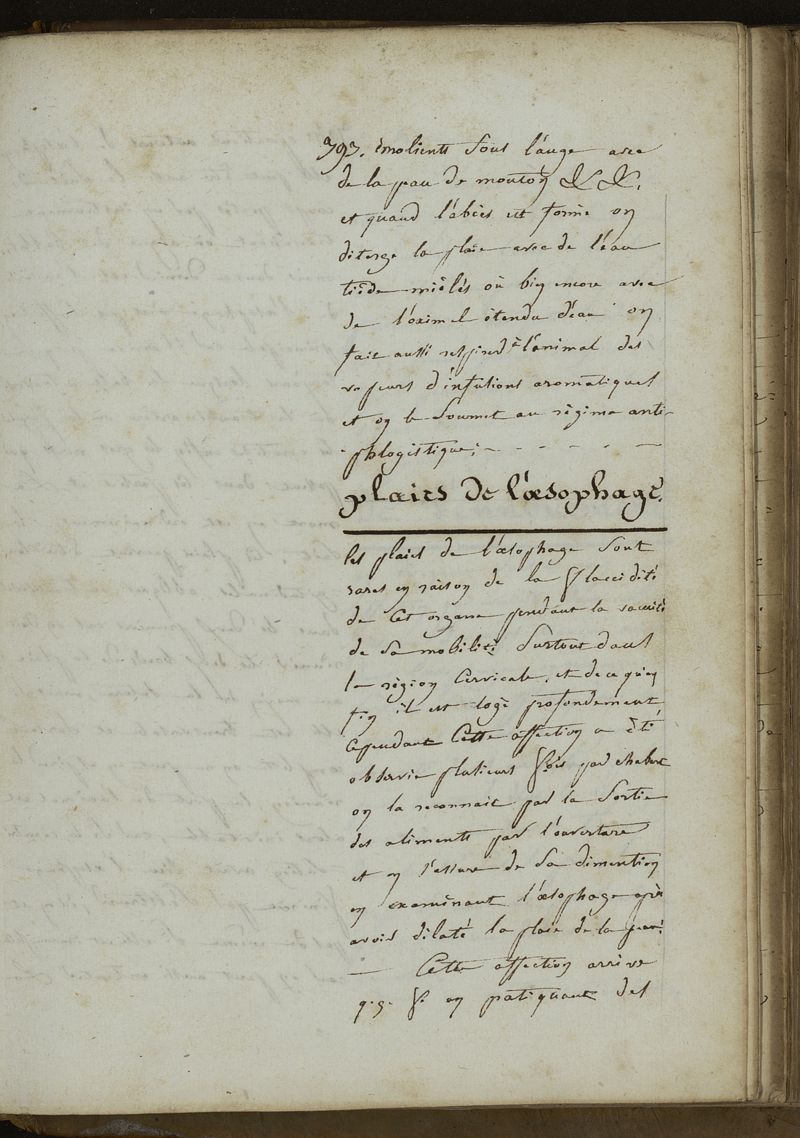 393. émolients sous l'auge avec
de la pau de mouton &c &c.
et quand l'abcès est formé on
diterge la plaie avec de l'éau
tiède miêlés où bien encore avec
de l'oximel étendu d'éau on
fait aussi respirer à l'animal des
vapeurs d'infusions aromatiques
et on le soumet au régime anti-
phlogistique; - - - - -
plaies de l'œsophage.
les plaies de l'œsophage sont
rares en raison de la flaccidité
de cet organe pendant la vacuité
de sa mobilité surtout dans
la région cervicale, et de ce qu'en
fin il est logé profondement
cependant cette affection a été
observée plusieurs fois par chabert
on la reconnait par la sortie
des aliments par l'ouverture
et on s'assure de sa dimention
en examinant l'œsophage après
avoir dilaté la plaie de la peau.
— Cette affection arrive
q.q. f. en patiquant des